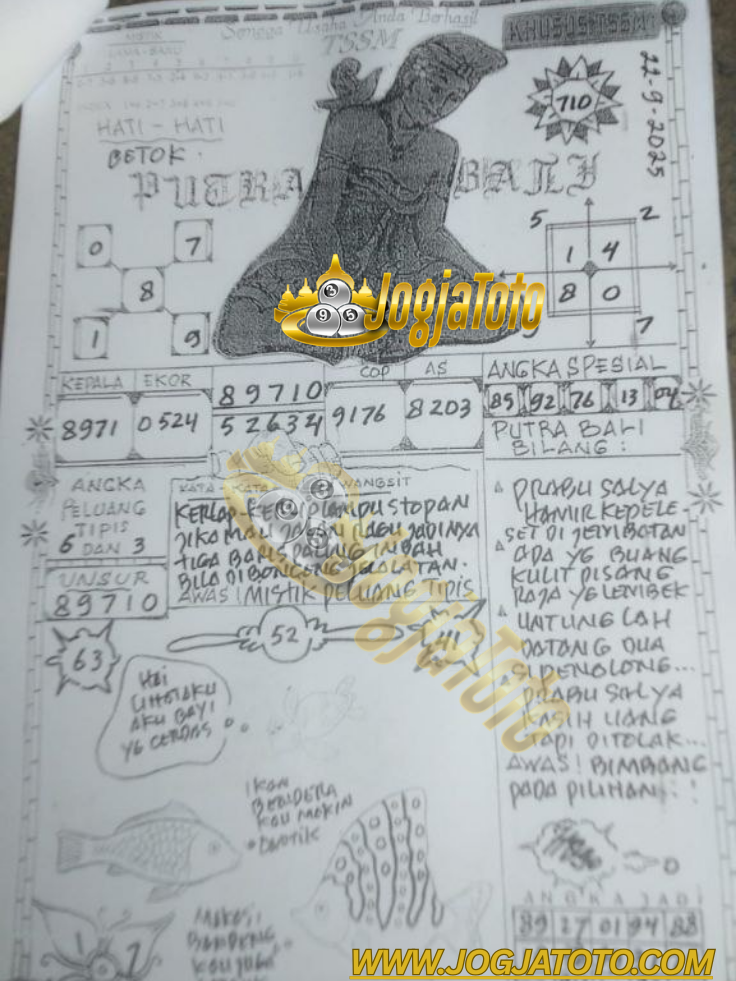 Semoga Usaha Anda Berhasil
TSSM
KHUSUS TSSM
MISTIK
LAMA - BARU
HATI - HATI
BETOK.
PUTRA BALI
710
22-9-2025
0 7
8
1 9
5 2
1 4
8 0
7
JogjaToto
KEPALA EKOR
8971 0524
89710
52634
COP AS
9176 8203
ANGKA SPESIAL
85 92 76 13 04
PUTRA BALI
BILANG :
ANGKA
PELUANG
TIPIS
6 DAN 3
UNSUR
89710
KATA - KATA WANGSIT
KERLAP KERLIP LAMPU STOPAN
JIKA MAU JAGAN RAGU JADINYA
TIGA BARIS PALING INDAH
BILA DIBONCENG JELALATAN.
AWAS ! MISTIK PELUANG TIPIS
PRABU SALYA
HAMIR KEPELE-
SET DI JEMBATAN
ADA YG BUANG
KULIT PISANG
RAJA YG LEMBEK
UNTUNG LAH
DATANG DUA
SI PENOLONG...
PRABU SALYA
KASIH UANG
TAPI DITOLAK...
AWAS ! BIMBANG
PADA PILIHAN !
63
52
41
JogjaToto
HAI
LIHATAKU
AKU BAYI
YG CERDAS
IKAN
BENDERA
KAU MAKIN
CANTIK
BANDENG
KAU JUGA
1 7
0
ANGKA JADI
89 27 01 94 88
WWW.JOGJATOTO.COM